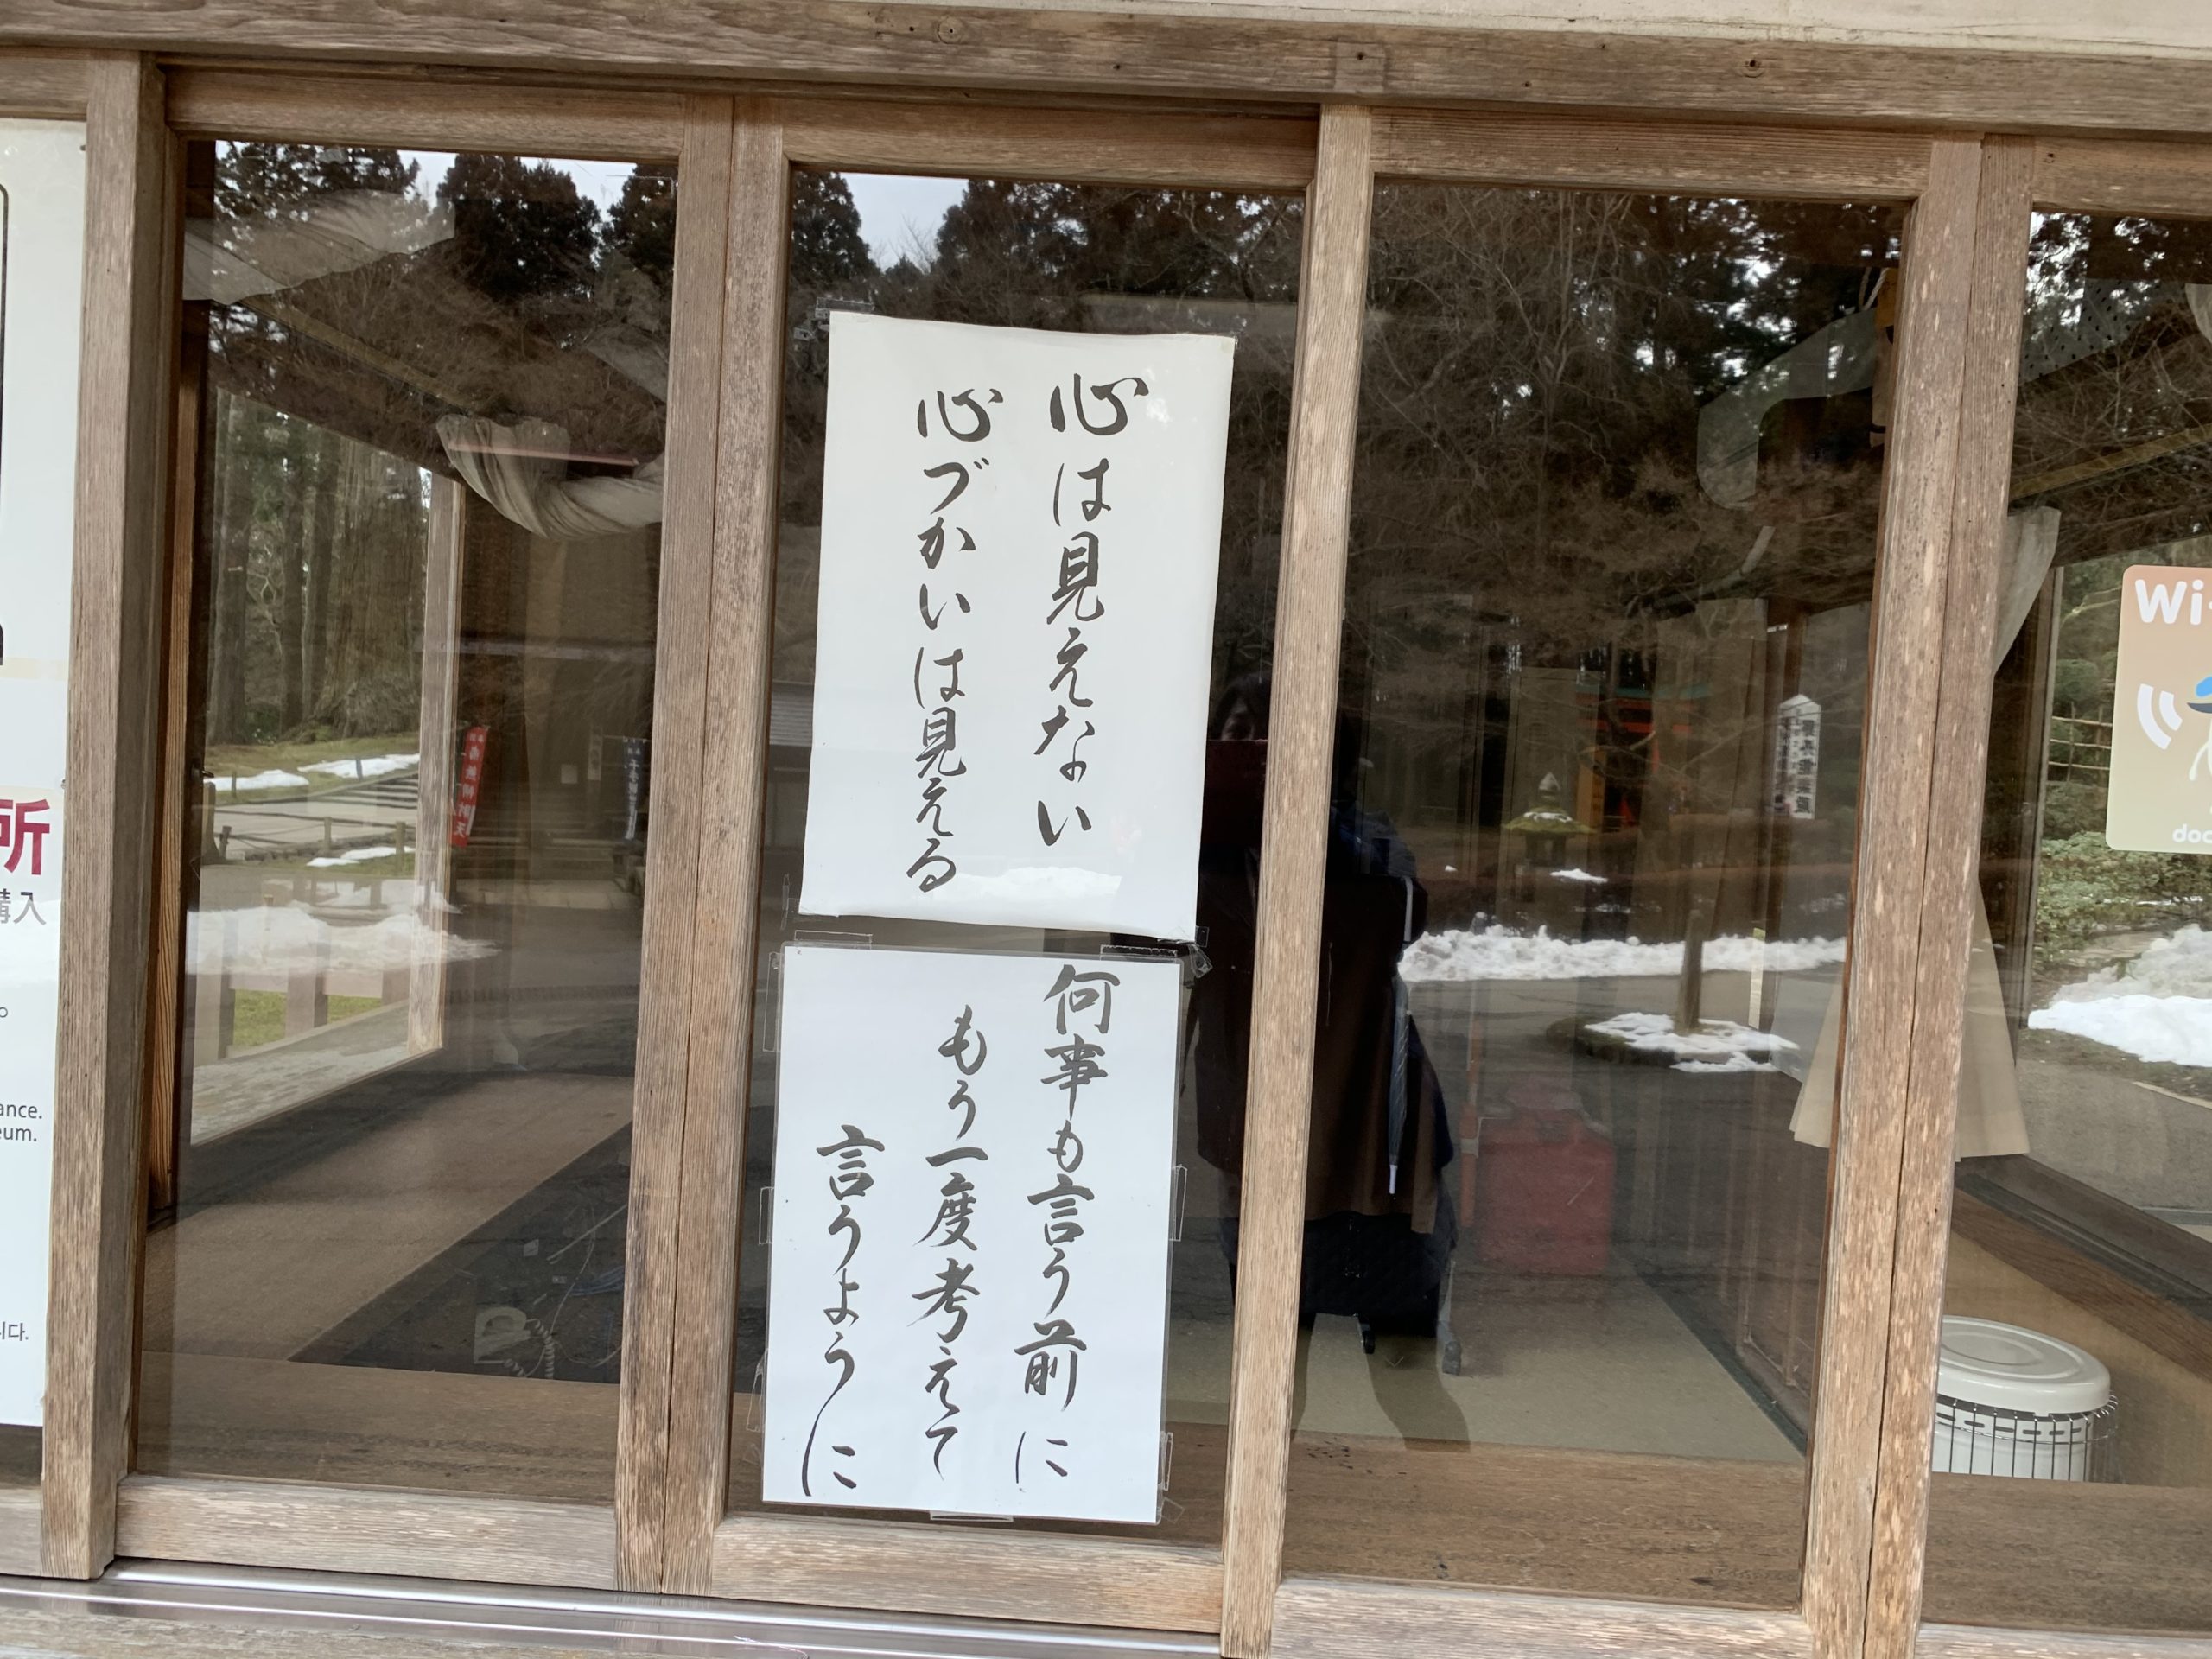 心は見えない
心づかいは見える
何事も言う前に
もう一度考えて
言うように
所
購入
ance.
eum.
니다.
Wi-
doc